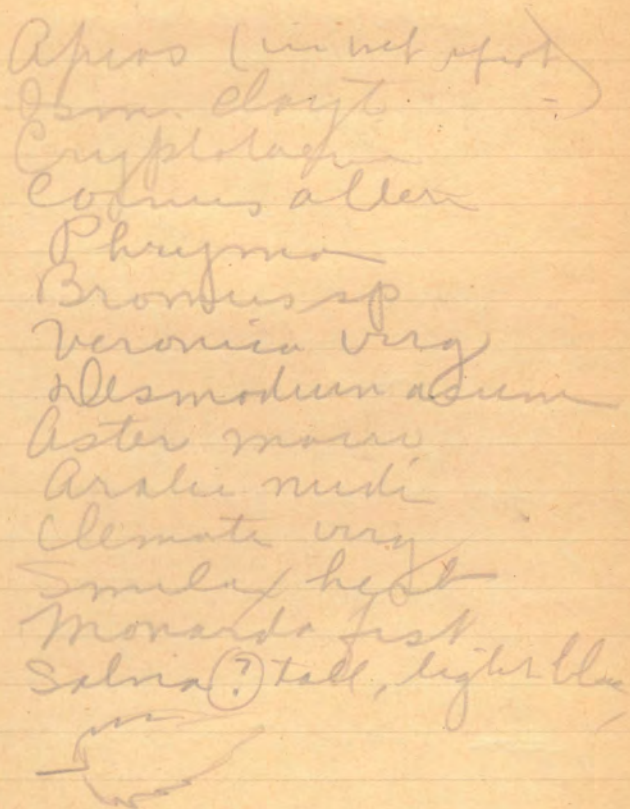 Apios (in wet spot)
Osm. clayt
Cryptotaen
Cornus altern
Phryma
Bromus sp
Veronica virg
Desmodium acum
Aster macro
Aralia nudi
Clemati virg
Smilax hisp
Monarda fist
Salvia (?) tall, light blue,